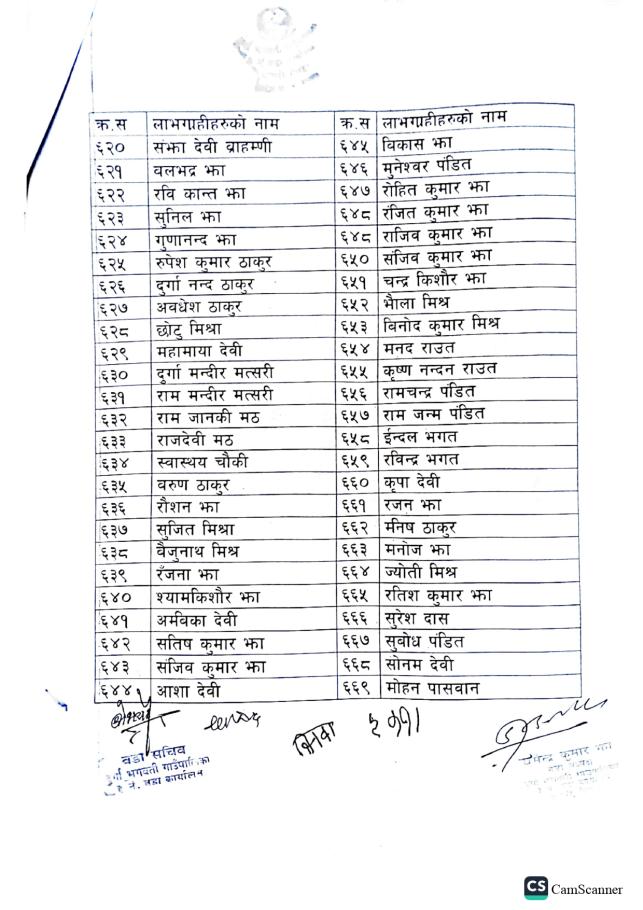 क्र.स लाभग्राहीहरुको नाम क्र.स लाभग्राहीहरुको नाम
६२० संझा देवी ब्राहम्णी ६४५ विकास झा
६२१ वलभद्र झा ६४६ मुनेश्वर पंडित
६२२ रवि कान्त झा ६४७ रोहित कुमार झा
६२३ सुनिल झा ६४८ रंजित कुमार झा
६२४ गुणानन्द झा ६४८ राजिव कुमार झा
६२५ रुपेश कुमार ठाकुर ६५० संजिव कुमार झा
६२६ दुर्गा नन्द ठाकुर ६५१ चन्द्र किशौर झा
६२७ अवधेश ठाकुर ६५२ भैाला मिश्र
६२८ छोटु मिश्रा ६५३ बिनोद कुमार मिश्र
६२९ महामाया देवी ६५४ मनद राउत
६३० दुर्गा मन्दीर मत्सरी ६५५ कृष्ण नन्दन राउत
६३१ राम मन्दीर मत्सरी ६५६ रामचन्द्र पंडित
६३२ राम जानकी मठ ६५७ राम जन्म पंडित
६३३ राजदेवी मठ ६५८ ईन्दल भगत
६३४ स्वास्थय चौकी ६५९ रविन्द्र भगत
६३५ वरुण ठाकुर ६६० कृपा देवी
६३६ रौशन झा ६६१ रजन झा
६३७ सुजित मिश्रा ६६२ र्मनिष ठाकुर
६३८ वैजुनाथ मिश्र ६६३ मनोज झा
६३९ रँजना झा ६६४ ज्योती मिश्र
६४० श्यामकिशौर झा ६६५ रतिश कुमार झा
६४१ अर्मवका देवी ६६६ सुरेश दास
६४२ सतिष कुमार झा ६६७ सुबोध पंडित
६४३ संजिव कुमार झा ६६८ सोनम देवी
६४४ आशा देवी ६६९ मोहन पासवान
वडा सचिव
भगवती गाउँपालिका
वडा कार्यालय
कुमार
CS CamScanner